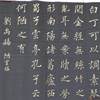 白丁可以調素琴
閱金經無絲竹之
亂耳無案牘之勞
形南陽諸葛廬西
蜀子雲亭孔子云
何陋之有
劉禹錫 陋室銘